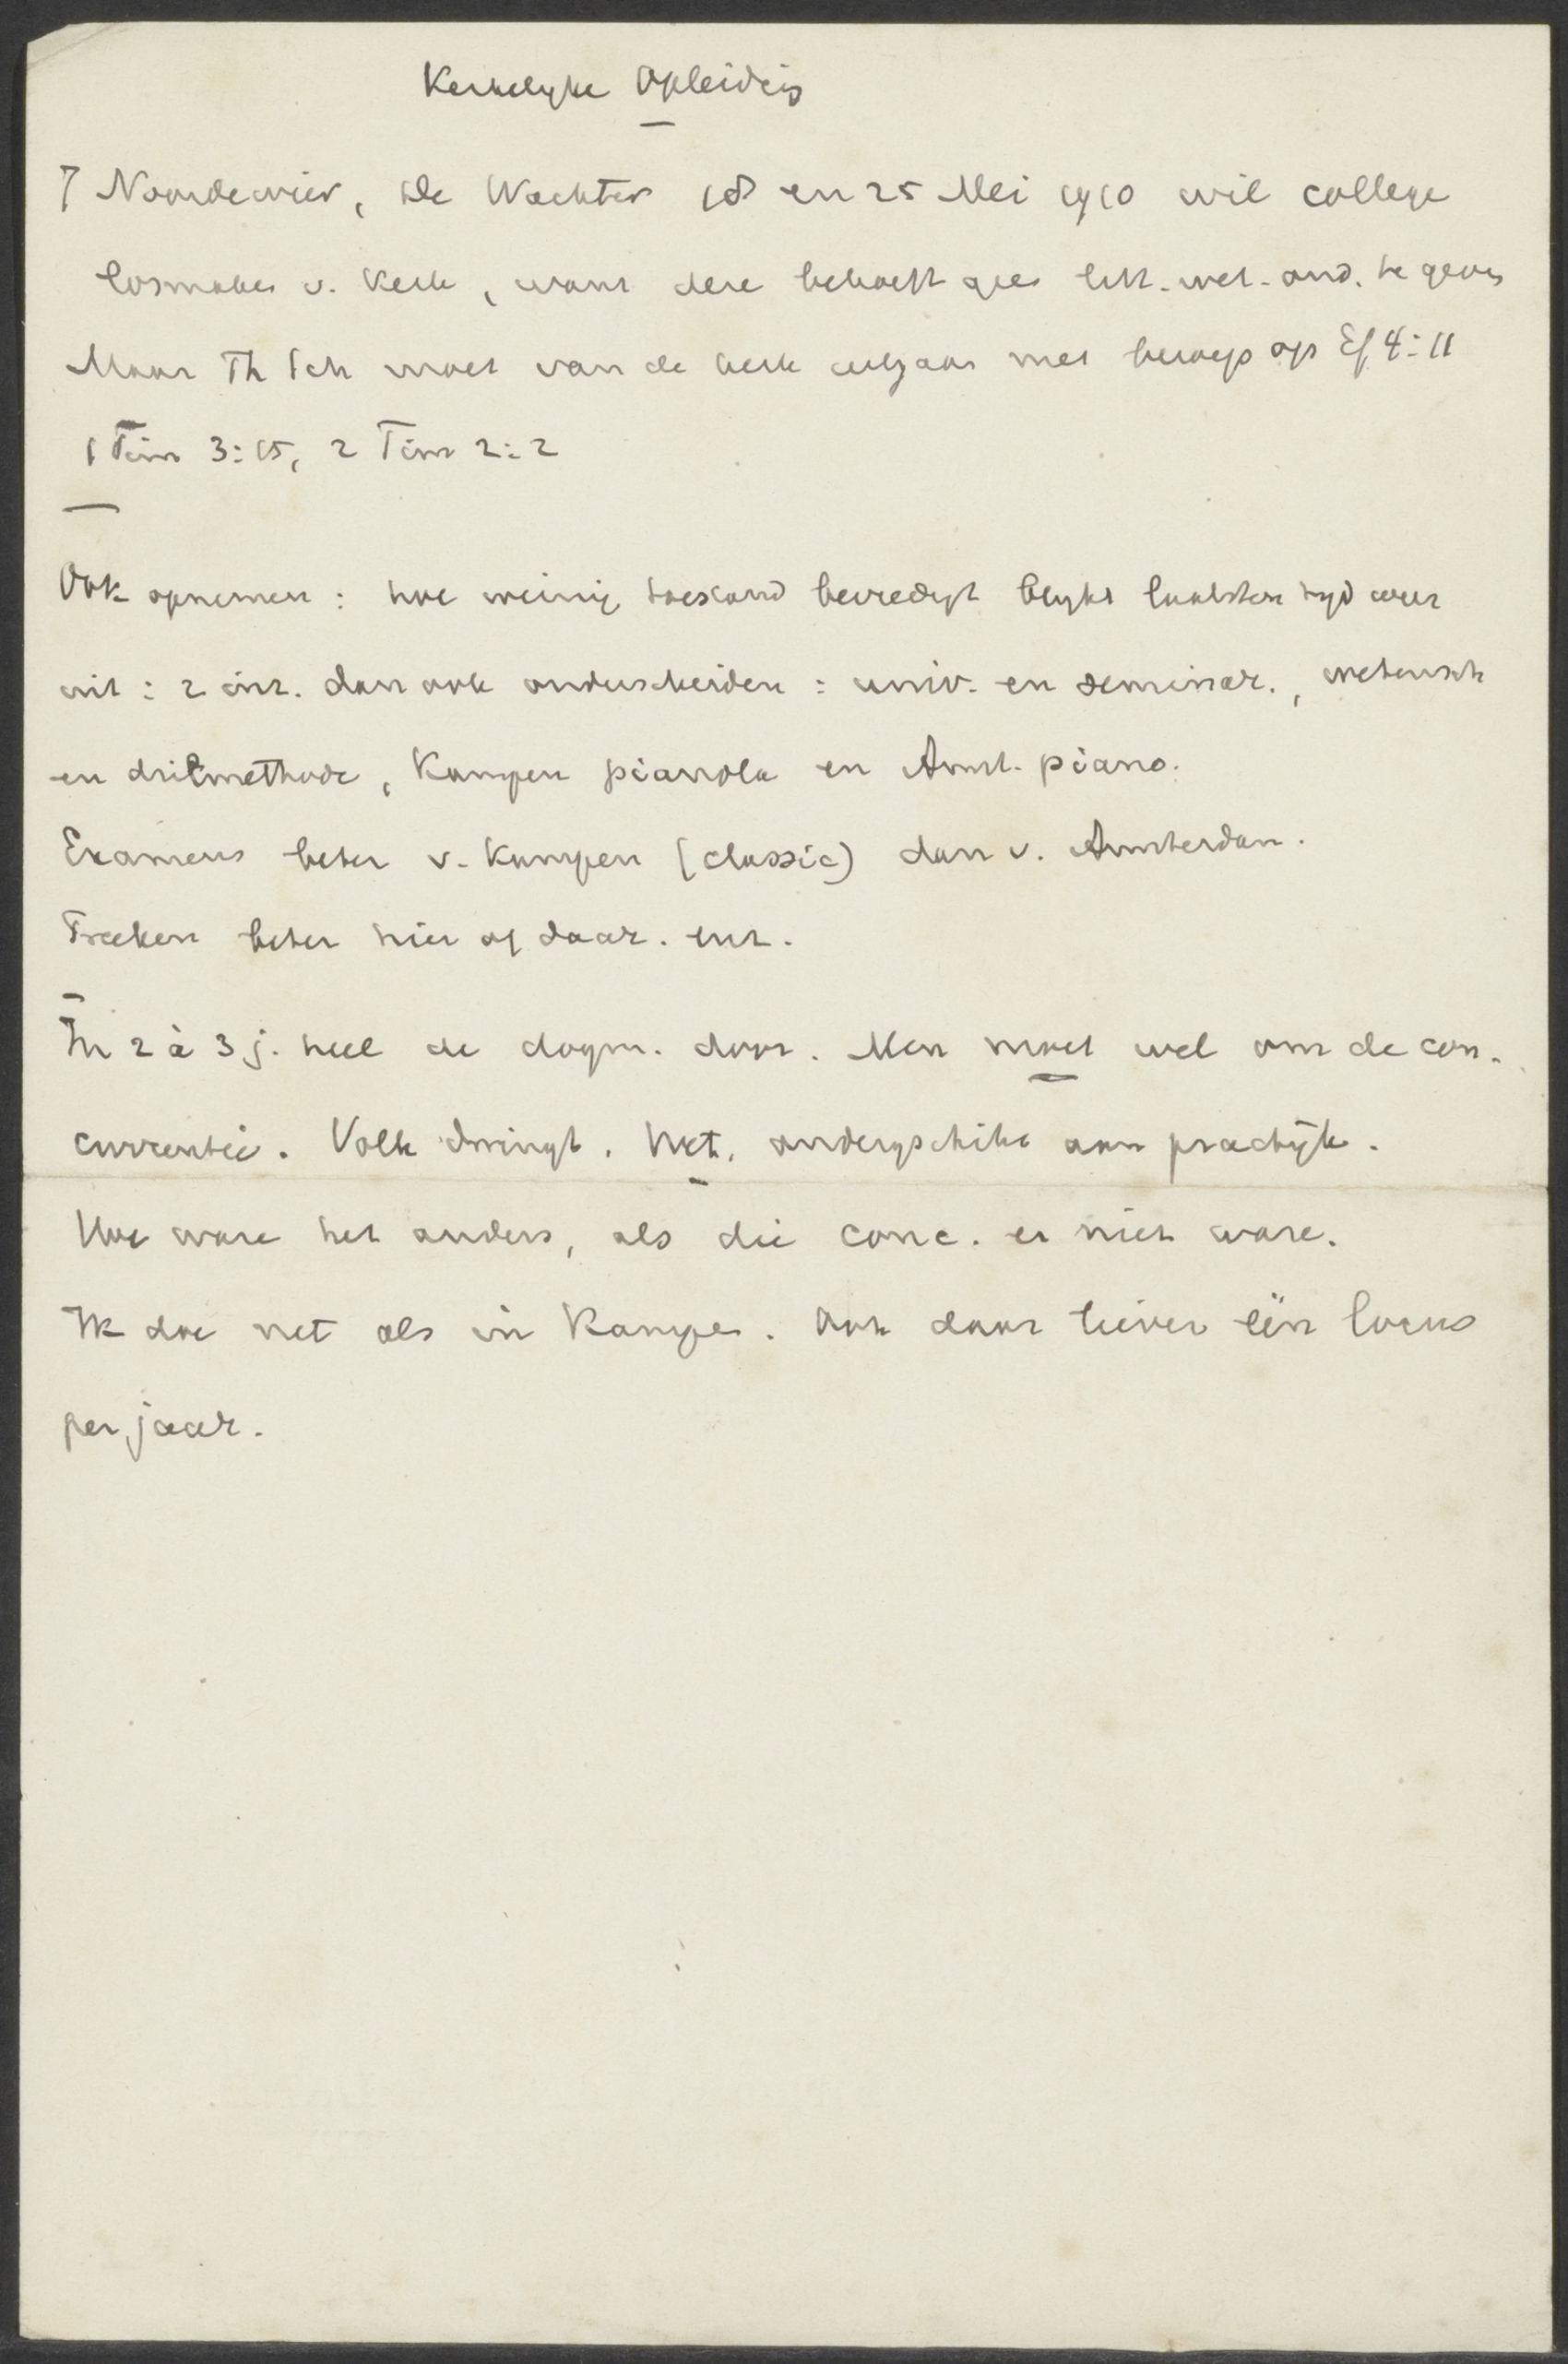 Kerkelyke Opleiding
T Noordewier, de Wachter 18 en 25 Mei 1910 wil college
losmaken v. Kerk, want deze behoeft geen litt. wet. ond. te geven
Maar Th Sch moet van de kerk uitgaan met beroep op Ef 4:11
1 Tim 3:15, 2 Tim 2:2
Ook opnemen: hoe weinig toestand bevredigt blykt laatsten tyd weer
uit: 2 inr. dan ook onderscheiden: univ. en seminar., wetensch
en drilmethode, Kampen pianola en Amst. piano.
Examens beter v. Kampen (classic) dan v. Amsterdam.
Preeken beter hier of daar. enz.
In 2 à 3 j. heel de dogm. door. Men moet wel om de con-
currentie. Volk dringt. Wet. ondergeschikt aan practijk.
Hoe ware het anders, als die conc. er niet ware.
Ik doe net als in Kampen. Ook daar liever één locus
per jaar.